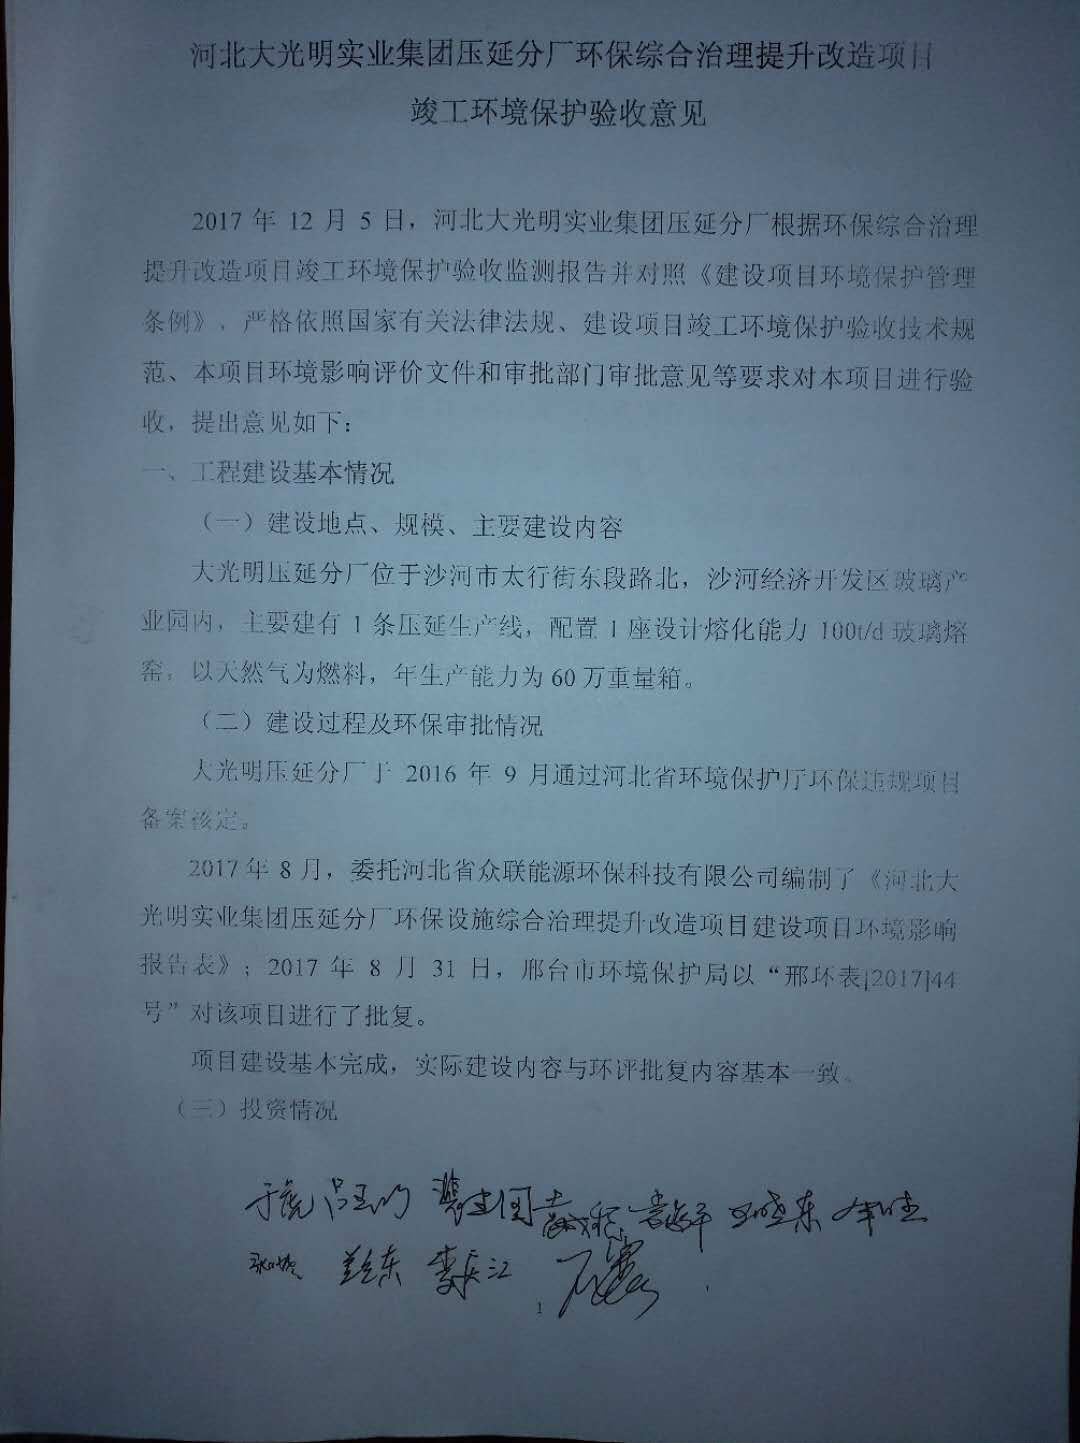 河北大光明实业集团压延分厂环保综合治理提升改造项目
竣工环境保护验收意见
2017 年 12 月 5 日，河北大光明实业集团压延分厂根据环保综合治理
提升改造项目竣工环境保护验收监测报告并对照《建设项目环境保护管理
条例》，严格依照国家有关法律法规、建设项目竣工环境保护验收技术规
范、本项目环境影响评价文件和审批部门审批意见等要求对本项目进行验
收，提出意见如下：
一、工程建设基本情况
（一）建设地点、规模、主要建设内容
大光明压延分厂位于沙河市太行街东段路北，沙河经济开发区玻璃产
业园内，主要建有 1 条压延生产线，配置 1 座设计熔化能力 100t/d 玻璃熔
窑，以天然气为燃料，年生产能力为 60 万重量箱。
（二）建设过程及环保审批情况
大光明压延分厂于 2016 年 9 月通过河北省环境保护厅环保违规项目
备案核定。
2017 年 8 月，委托河北省众联能源环保科技有限公司编制了《河北大
光明实业集团压延分厂环保设施综合治理提升改造项目建设项目环境影响
报告表》；2017 年 8 月 31 日，邢台市环境保护局以“邢环表[2017]44
号”对该项目进行了批复。
项目建设基本完成，实际建设内容与环评批复内容基本一致。
（三）投资情况
李长江
1